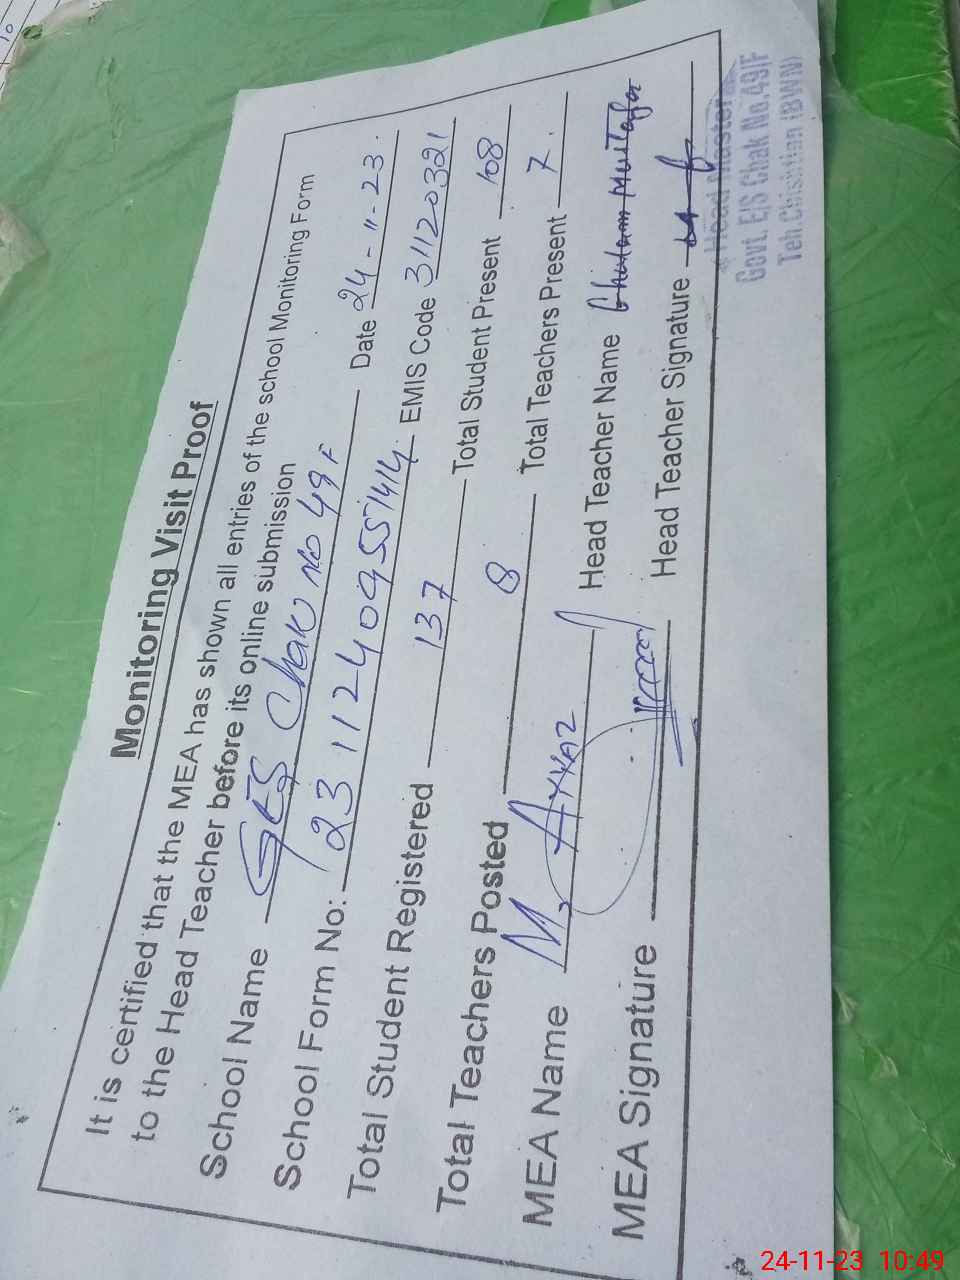 Monitoring Visit Proof
It is certified that the MEA has shown all entries of the school Monitoring Form
to the Head Teacher before its online submission
School Name GES Chak No 49 F Date 24-11-23.
School Form No: 23112409551414 EMIS Code 31120321
Total Student Registered 137 Total Student Present 108
Total Teachers Posted 8 Total Teachers Present 7.
MEA Name M. Ayyaz Head Teacher Name Ghulam Mustafa
MEA Signature Head Teacher Signature
Head Master
Govt. E/S Chak No.49/F
Teh.Chishtian (BWN)
24-11-23 10:49